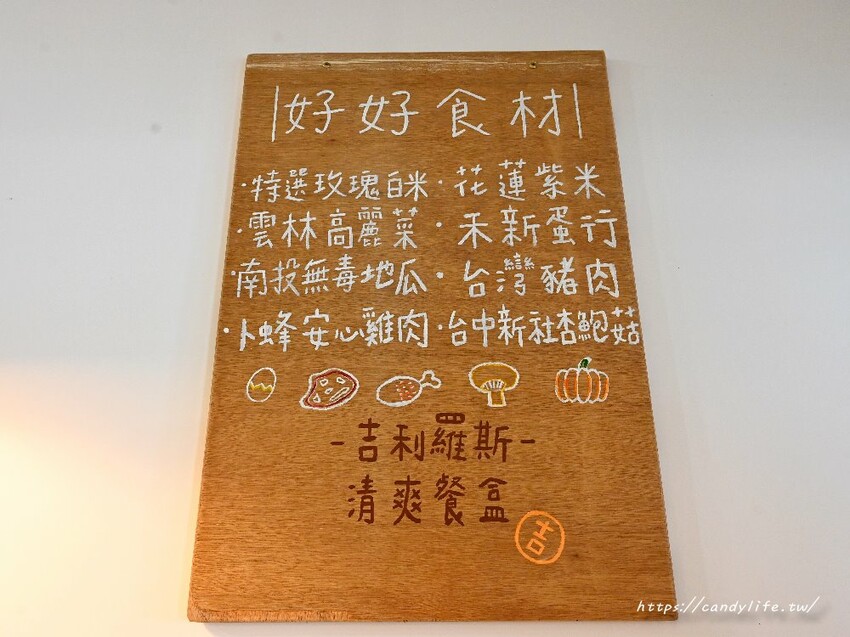 |好好食材|
·特選玫瑰白米·花蓮紫米
·雲林高麗菜·禾新蛋行
·南投無毒地瓜·台灣豬肉
·卜蜂安心雞肉·台中新社杏鮑菇
-吉利羅斯-
清爽餐盒
吉
https://candylife.tw/